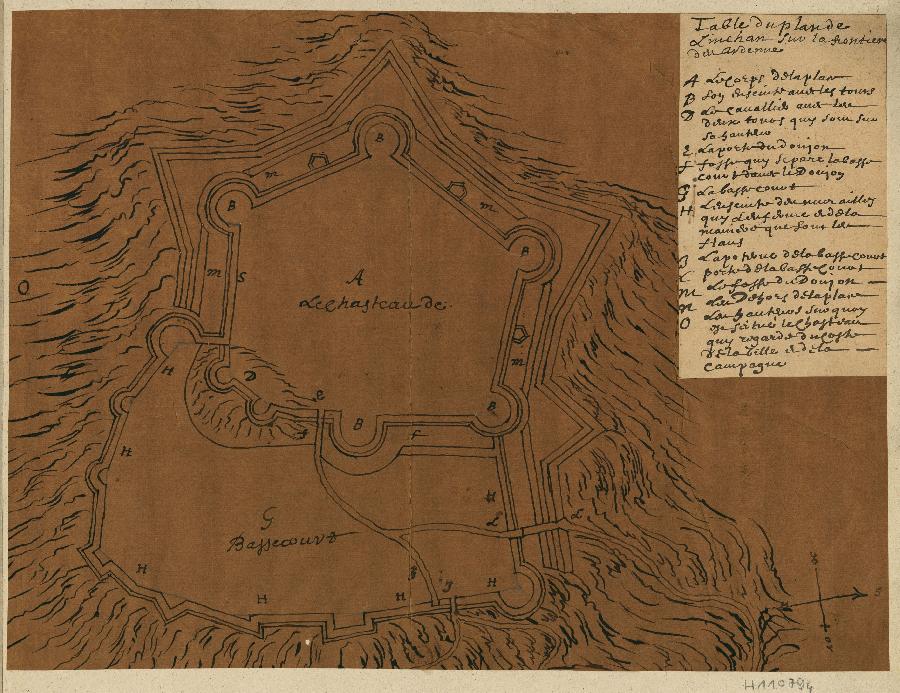 Table du plan de
Linchan sur la frontiere
des Ardenne
A Le Corps de la plan
B Son enseinte avec les tours
D Le Cavallier avec les
deux tours quy sont sur
sa hauteur
E La porte du donjon
f fosse quy separe la basse
court davec le Donjon
G La basse court
H L'enseinte des murailles
quy L'enferme et de la
maniere que sont les
flans
J La poterne de la basse court
L porte de la basse Court
m Le fosse du Donjon
n Les Dehors de la plan
O Les hauteurs sur quoy
est situé le Chasteau
quy regarde du coste
de la ville et de la
Campagne
B
m
m
B
B
m
S
A
Le Chasteau de
O
m
H
D
e
B
B
f
f
H
H
G
Bassecourt
L
L
H
H
H
J
H
H110794